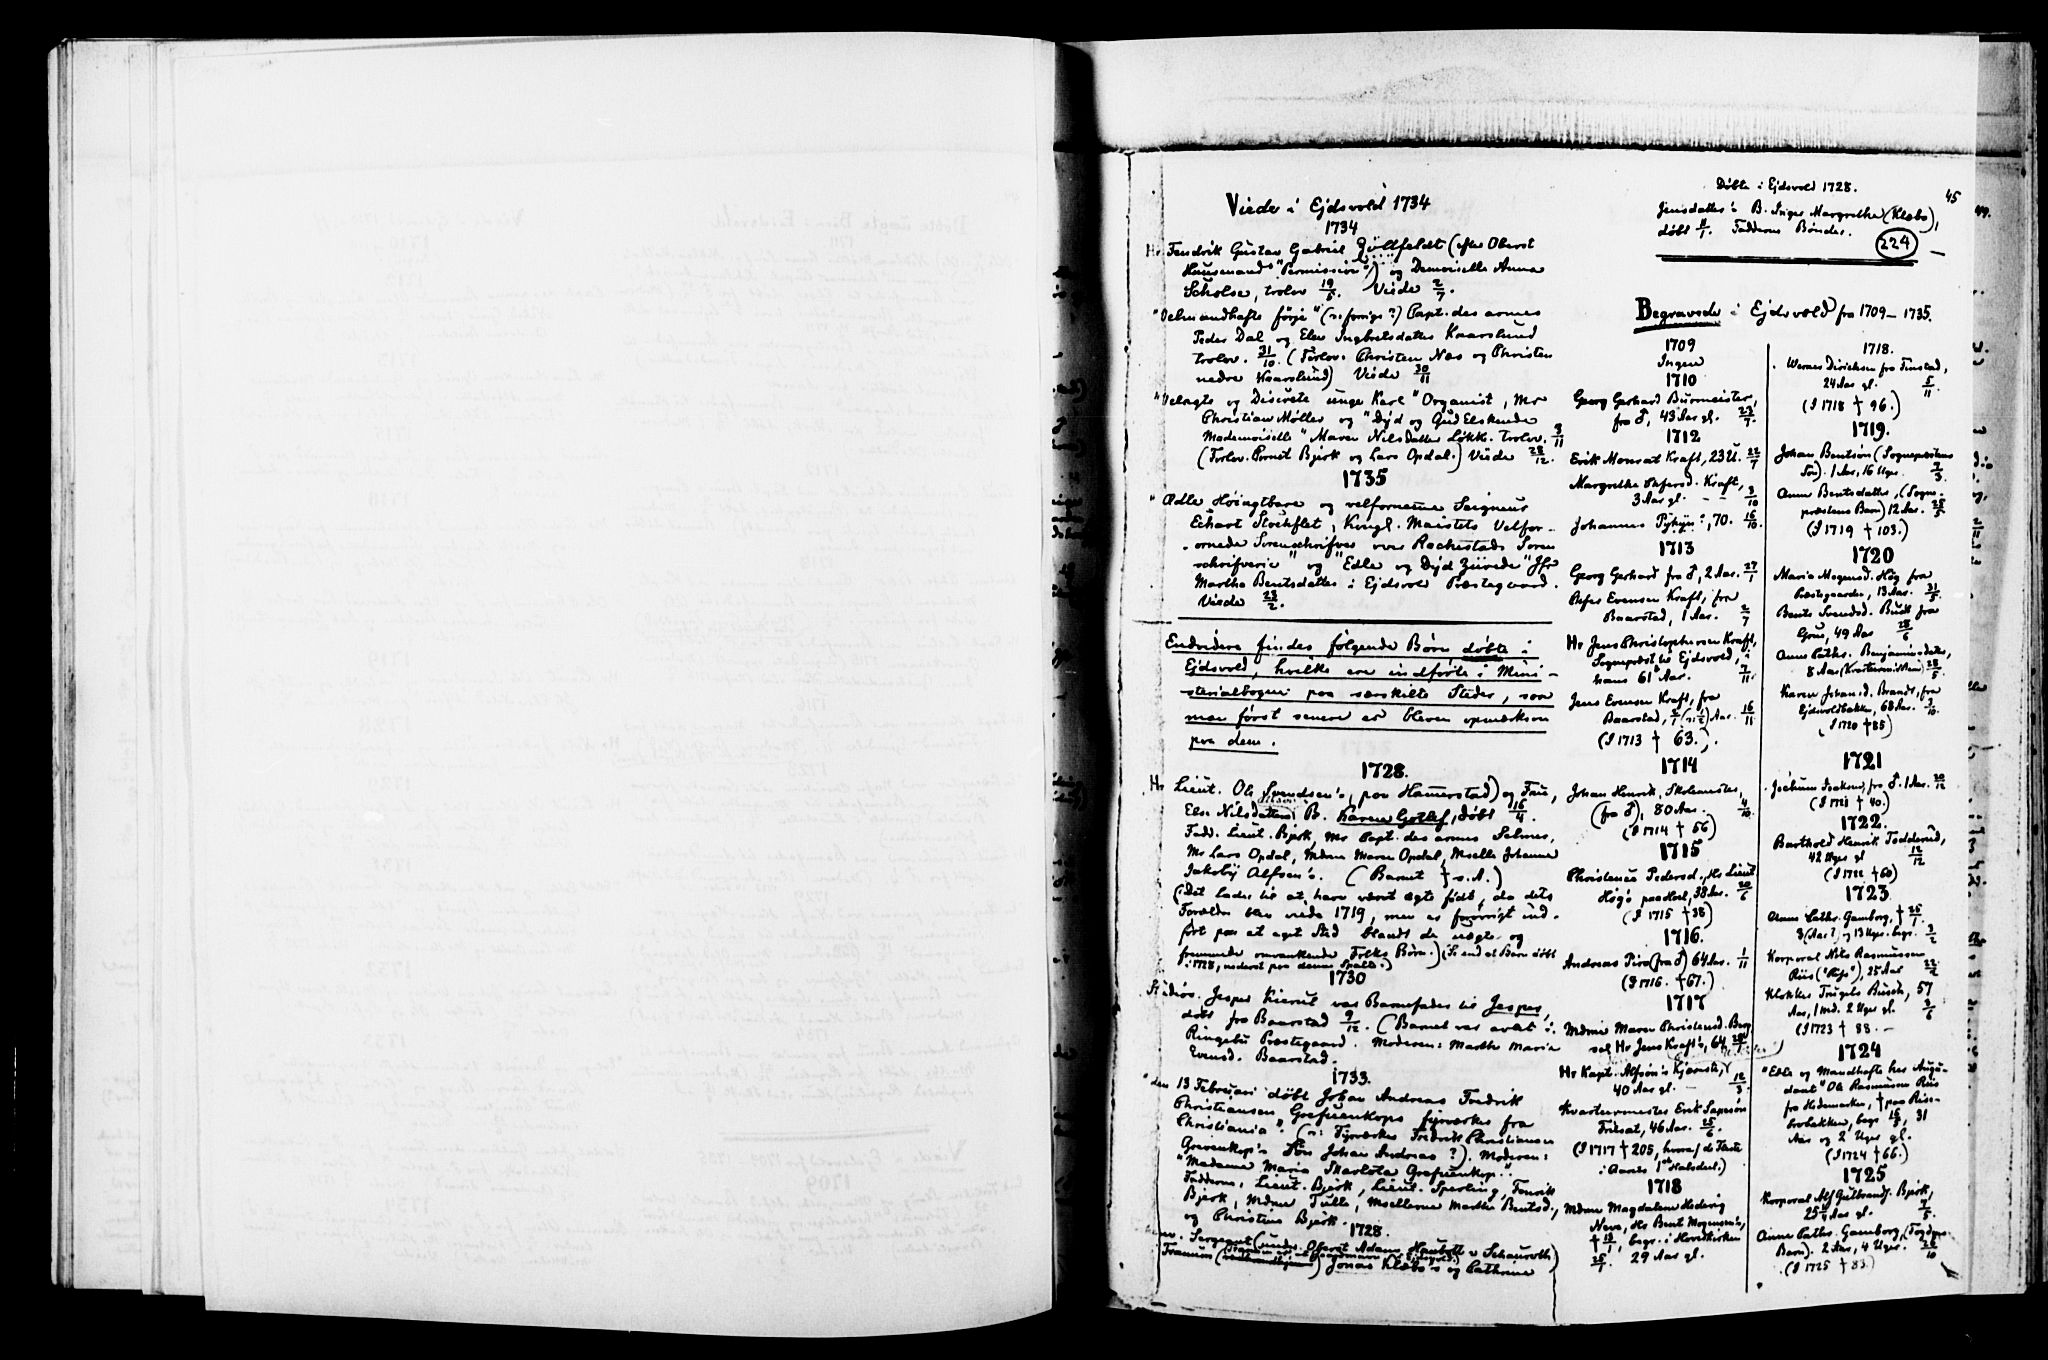 Viede i Ejdsvold 1734
1734
Hr Fendrik Gustav Gabriel Zöllfeldt (efter Oberst
Hausmands "Permission") og Demoiselle Anna
Scholse, trolov 19/5. Viede 2/7.
"Velmandhafte förje" (ɔ: forrige?) Capt. des armes
Peder Dal og Elen Ingbretsdatter Kaarslund
trolov. 31/10. (Forlov: Christen Næs og Christen
nedre Kaarslund) Viede 30/11
"Velagte og Discrete unge Karl" Organist, Mr
Christian Møller og "Dyd og Gud Elskende
Mademoiselle" Maren Nilsdatter Løkke. trolov. 3/11
(Forlov. Bernt Bjerk og Lars Opdal.) Viede 28/12.
1735
"Ædle Høiagtbare og velfornemme Seigneur
Echart Stockflet, Kongl. Maistets Velfor-
ornede Sorenschrifver over Rachestads Soren
schrifverie" og "Edle og Dyd Ziirede" Jfr
Martha Bentsdatter i Ejdsvold Præstegaard.
Viede 23/2.
Endvidere findes følgende Børn døbte i
Ejdsvold, hvilke ere indførte i Mini-
sterialbogen paa særskilte Steder, som
man først senere er bleven opmærksom
paa dem.
1728.
Hr Lieut. Ole Svendsen's, paa Hamerstad) og Frue,
Else Nilsdatters B. Karen Gotlef, døbt 16/4.
Fadd. Lieut. Bjerk, Mr Capt. des armes Selmer,
Mr Lars Opdal, Mdme Maren Opdal, Mselle Johanne
Jakobý Alfsen's. (Barnet † s. A.)
(Det lader til at have været ægte født, da dets
Forældre blev viede 1719, men er forøvrigt ind-
ført paa et eget Sted blandt de uægte og
fremmede omvankende Folks Børn.) (Se end et Barn døbt
i 1728, nederst paa denne Spalte.)
1730
Studios. Jesper Kierul var Barnefader til Jesper,
døbt fra Baarstad 9/12. (Barnet var avlet i
Ringebu Præstegaard. Moderen: Marthe Maria
Evensd. Baarstad.
1733.
"den 13 Februari døbt Johan Andreas Fredrik
Christiansen Grefvenkops fyrværker fra
Christiania". (ɔ: Fyrværker Fredrik Christiansen
Grevenkop's Søn Johan Andreas?). Moderen:
"Madame Maria Skarlota Grefvenkop".
Fadderne, Lieut. Bjerk, Lieut. Sperling, Fenrik
Bjerk, Mdme Tulle, Msellerne Marthe Bentsd.,
og Christine Bjerk.
1728.
Sergeant (under Oberst Adam Haubolt v Schauroth)
Jonas Klæbo's og Cathrine
Døbte i Ejdsvold 1728.
45
Jensdatter's B. Inger Margrethe (Klæbo),
døbt 11/1. Fadderne Bønder.
224
Begravede i Ejdsvold fra 1709–1735.
1709
Ingen
1710
Georg Gerhard Burmeister,
fra ♂, 43 Aar gl. 23/7.
1712
Erik Monrat Kraft, 23 U. 22/7
Margrethe Chrfersd. Kraft,
3 Aar gl. – – 3/10
Johannes Pykýn?, 70. 16/10.
1713
Georg Gerhard fra ♂, 2 Aar. 27/1
Chrfer Evensen Kraft, fra
Baarstad, 1 Aar. 2/7
Hr Jens Christophersen Kraft,
Sognepræst til Ejdsvold, i
hans 61de Aar. 7/11.
Jens Evensen Kraft, fra
Baarstad, 2/1 (ɔ: 1/2) Aar. 16/11
(I 1713 † 63.).
1714
Johan Henrik, Skolemester,
(fra ♂), 80 Aar. 4/10.
(I 1714 † 56)
1715
Christence Pedersd., Hr Lieut
Høg's paa Hol, 38 Aar. 20/6
(I 1715 † 38)
1716.
Andreas Piro (fra ♂) 64 Aar. 1/11
(I 1716. † 67.)
1717
Mdme Maren Christensd. Bang
sal Hr Jens Kraft's, 64
Hr Kapt. Alfsøn's Kjæreste,
40 Aar gl. – 12/3.
Kvartermester Erik Sapesøn
Friksat, 46 Aar. 25/6.
(I 1717 † 205, hvoraf de fleste
i Aarets 1ste Halvdel.)
1718
Mdme Magdalene Hedevig
Neve, Hr Bent Mogensen's,
† 13/1, begr. i Hovedkirken
25/1. 29 Aar gl.
1718.
Werner Dirichsen fra Finstad,
24 Aar gl. 5/11.
(I 1718 † 96.)
1719.
Johan Bentsøn (Sognepræstens
Søn). 1 Aar, 16 Uger. 7/3.
Anne Bentsdatter, (Sogne-
præstens Barn) 12 Aar. 25/5
(I 1719 † 103.)
1720
Maria Mogensd. Høg fra
Præstegaarden, 13 Aar. 31/5.
Bente Svendsd. Busk fra
Grue, 49 Aar 28/6
Anne Cathr. Benjaminsdatter,
8 Aar (Kvartermst. Barn) 28/5.
Karen Johansd. Brandt, fra
Ejdsvoldbakken, 68 Aar. 3/10.
(I 1720 † 85)
1721
Jochum Isaksen, fra ♂. 1 Aar. 20/12
(I 1721 † 40.)
1722.
Barthold Henrik Todderud,
42 Uger gl 12/12
(I 1722 † 60)
1723
Anne Cathr. Gamborg, † 25/1.
3 (Aar?) og 13 Uger. begr. 3/2
Korporal Nils Rasmussen
Riis ("Riis"), 25 Aar 22/2
Klokker Trugels Busch, 57
Aar, 1 md. 2 Uger gl. 3/6
(I 1723 † 88. –
1724
"Edle og Mandhafte her Adju-
dant" Ole Rasmussen Riis
fra Hedemarken, † paa Riise-
brobakken, begr 16/5, 31
Aar og 2 Uger gl.
(I 1724 † 66.)
1725
Korporal Alf Gulbrandsen Bjerk,
25 1/4 Aar gl. 3/5.
Anne Cathr. Gamborg, (Fogdens
Barn). 2 Aar, 4 Uger. 28/10
(I 1725 † 83.)